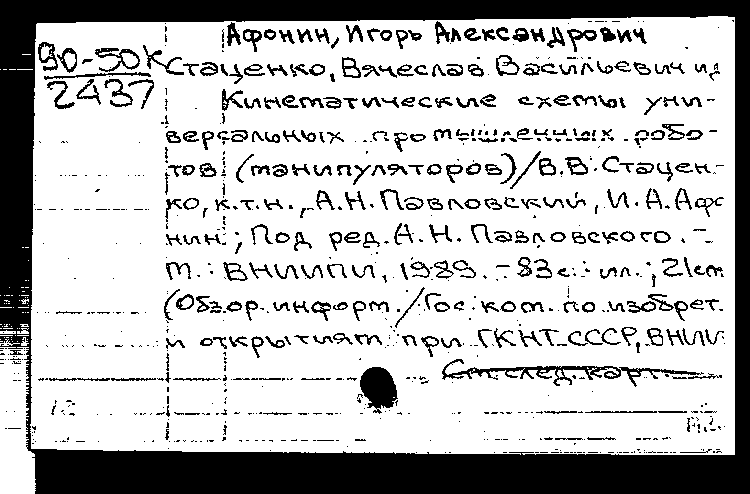 Афонин, Игорь Александрович
90-50К
2437
Стаценко, Вячеслав Васильевич и д
Кинематические схемы уни-
версальных промышленных робо-
тов (манипуляторов)/В.В. Стацен-
ко, к.т.н., А.Н. Павловский, И.А. Афо
нин; Под ред. А.Н. Павловского. -
М.: ВНИИПИ, 1989. - 83 с.: ил.; 21 см
(Обзор. информ./Гос. ком. по изобрет.
и открытиям при ГКНТ СССР, ВНИИ
См. след. карт.